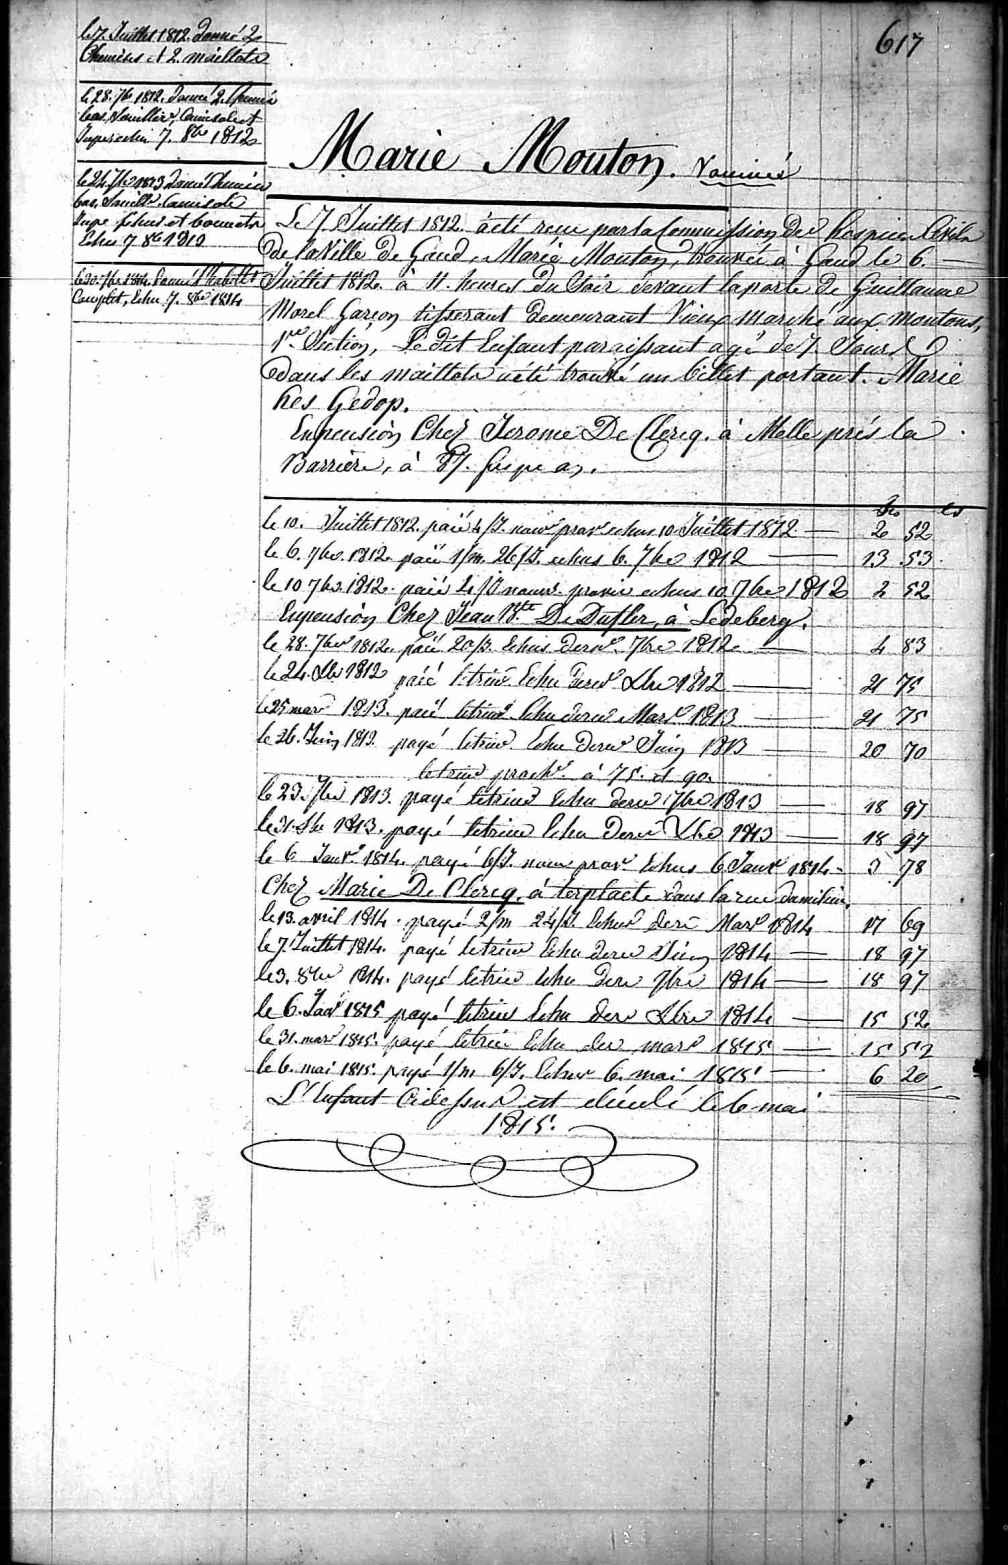 617
le 7. Juillet 1812. donné 2
Chemises et 2. maillots
le 28. 7bre 1812. donné 2. Chemises
bas, Souillier, Camisole et
Jupe echu 7. 8bre 1812
le 24. 7bre 1813 donné Chemise
bas, Soulls. Camisole
Jupe fichus et bonnets
Echu 7 8bre 1813
le 30. 7bre 1814. donné l'habillet
Complet, Echu 7. 8bre 1814
Marie Mouton. Vacciné
Le 7. Juillet 1812. a été recu par la Commission des hospices Civils
de la Ville de Gand, Marie Mouton, trouvée à Gand le 6. —
Juillet 1812. à 11. heures du Soir devant la porte de Guillaume
Morel Garcon tisserant demeurant Vieux marché aux moutons,
1re Section, Le dit Enfant paraissant agé de 7. Jours
dans les maillots a été trouvé un billet portant. Marie
hes Gedop.
En pension Chez Jerome De Clercq. à Melle prés la
Barriere, à 87. fs par an.
fs cs
le 10. Juillet 1812. paié 4/J. nour prov echus 10 Juillet 1812 — 2 52
le 6. 7bre. 1812. paié 1/m. 26/J. echus 6. 7bre 1812 — 13 53
le 10 7bre. 1812. paié 4/J nourr. provis echus 10 7bre 1812 2 52
En pension Chez Jean Bte De Dufler, à Ledeberg.
le 28. 7bre 1812. paié 20/J. Echus dernr 7bre 1812 — 4 83
le 24. Xbre 1812 paié letrim Echu dernr Xbre 1812 — 21 75
le 25 mars 1813. paié letrimr. Echu dernr Mars 1813 — 21 75
le 26. Juin 1813. payé letrim Echu dernr Juin 1813 — 20 70
letrim prochn. à 75. et 90
le 23. 7bre 1813. payé letrim Echu dernr 7bre 1813 — 18 97
le 31. Xbre 1813. payé letrim Echu dernr Xbre 1813 — 18 97
le 6. Janvr. 1814. payé 6/J. nour prov Echus 6 Janvr 1814 - 3 78
Chez Marie De Clercq, à terplaete dans la rue
le 13. avril 1814. payé 2/m 24/J. Echus dern Mars 1814 17 69
le 7. Juillet 1814. payé letrim Echu dernr Juin 1814 — 18 97
le 3. 8bre 1814. payé letrim Echu dern 7bre 1814 — 18 97
le 6. Janr 1815 payé letrim Echu dern Xbre 1814 — 15 52
le 31. mars 1815. payé letrim Echu der mars 1815 — 15 52
le 6. mai 1815. payé 1/m 6/J. Echus 6. mai 1815 — 6 20
L'Enfant Cidessus est décédé le 6 mai
1815.